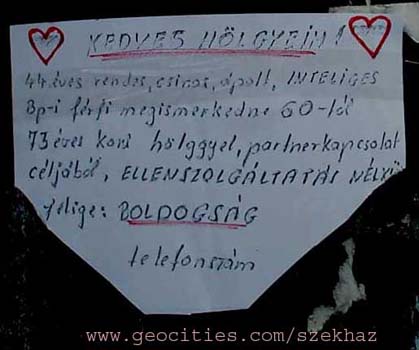 KEDVES HÖLGYEIM!
44 éves rendes, csinos, ápolt, INTELIGES
Bp-i férfi megismerkedne 60-tól
73 éves korú hölggyel, partnerkapcsolat
céljából, ELLENSZOLGÁLTATÁS NÉLKÜ
Jelige: BOLDOGSÁG
telefonszám
www.geocities.com/szekhaz